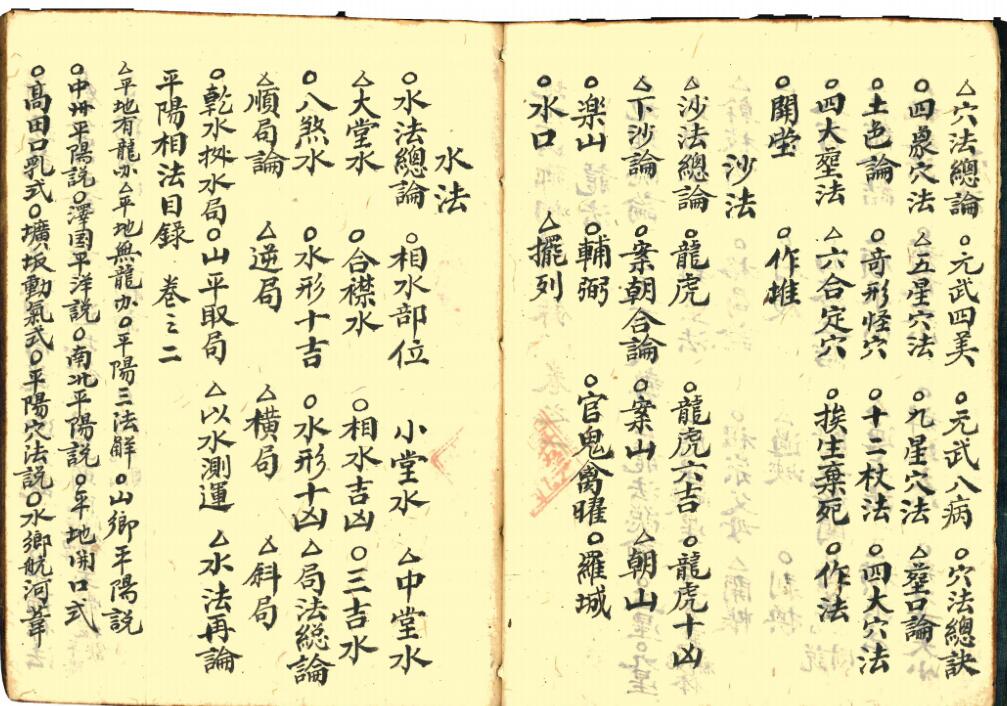 △穴法總論 ○元武四美 ○元武八病 ○穴法總訣
○四農穴法 △五星穴法 ○九星穴法 △塟口論
○土色論 ○奇形怪穴 ○十二杖法 ○四大穴法
○四大塟法 △六合定穴 ○挨生棄死 ○作法
○開堂 ○作
沙法
△沙法總論 ○龍虎 ○龍虎六吉 ○龍虎十凶
△下沙論 ○案朝合論 ○案山 △朝山
○楽山 ○輔弼 ○官鬼禽曜 ○羅城
○水口 △擺列
水法
○水法總論 ○相水部位 小堂水 △中堂水
△大堂水 ○合襟水 ○相水吉凶 ○三吉水
○八煞水 ○水形十吉 ○水形十凶 △局法総論
△順局論 △逆局 △横局 △斜局
○乾水 水局 ○山平取局 △以水測運 △水法再論
平陽相法目録 卷之二
△平地有龍 △平地無龍 ○平陽三法觧 ○山鄉平陽説
○中州平陽説 ○澤国平洋説 ○南北平陽説 ○平地開口式
○高田口乳式 ○壙坂動氣式 ○平陽穴法説 ○水鄉 河